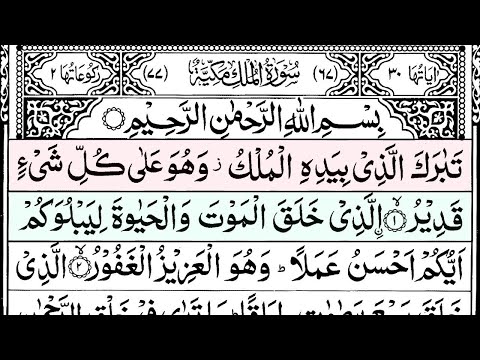 اٰيَاتُهَا ٣٠ (٦٧) سُوْرَةُ الْمُلْكِ مَكِّيَّةٌ (٧٧) رُكُوْعَاتُهَا ٢
بِسْمِ اللّٰهِ الرَّحْمٰنِ الرَّحِيْمِ
تَبٰرَكَ الَّذِىْ بِيَدِهِ الْمُلْكُ ز وَهُوَ عَلٰى كُلِّ شَىْءٍ
قَدِيْرُ ۙ‏﴿۱﴾ اۨلَّذِىْ خَلَقَ الْمَوْتَ وَالْحَيٰوةَ لِيَبْلُوَكُمْ
اَيُّكُمْ اَحْسَنُ عَمَلًا ؕ وَهُوَ الْعَزِيْزُ الْغَفُوْرُ ۙ‏﴿۲﴾ الَّذِىْ
خَلَقَ سَبْعَ